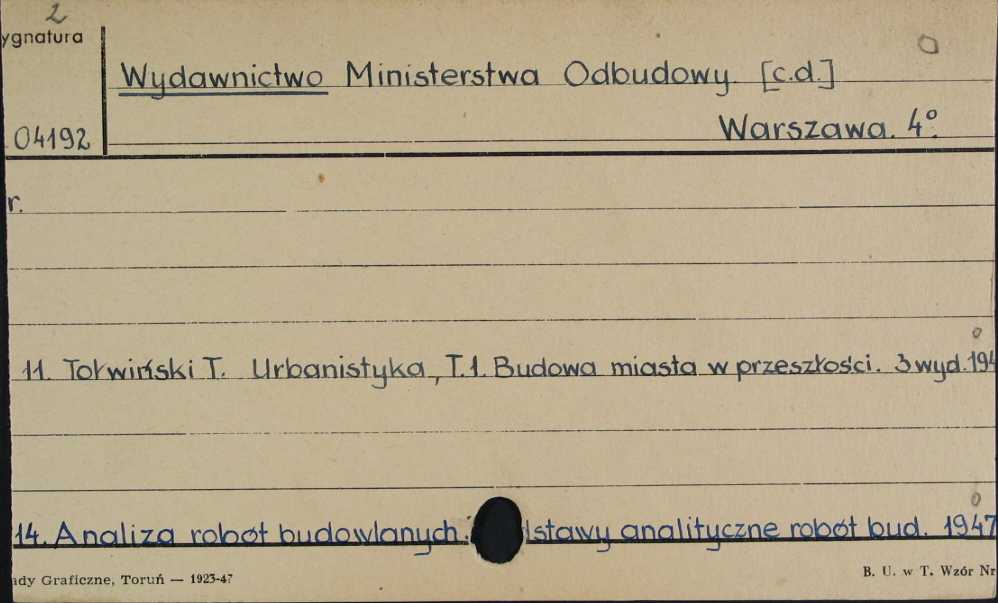 2
ygnatura
Wydawnictwo Ministerstwa Odbudowy. [c.d.]
04192
Warszawa. 4º.
r.
11. Tołwiński T. Urbanistyka, T.1. Budowa miasta w przeszłości. 3 wyd. 194
14. Analiza robót budowlanych. dstawy analityczne robót bud. 1947
ady Graficzne, Toruń — 1923-47
B. U. w T. Wzór Nr